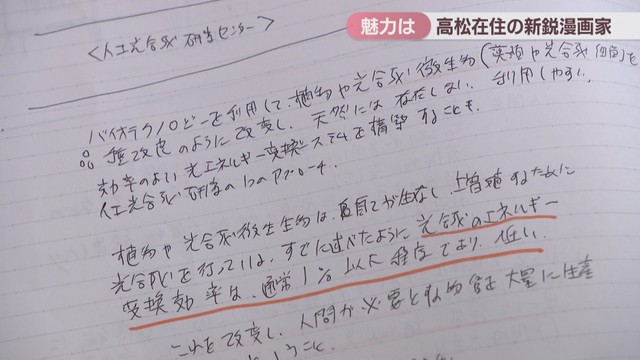 魅力は 高松在住の新鋭漫画家
<人工光合成研究センター>
バイオテクノロジーを利用して、植物や光合成微生物(英語や光合成細菌)を
種改良のように改変し、天然には存在しない、利用しやすい、
効率のよい光エネルギー変換システムを構築することも、
人工光合成研究の1つのアプローチ。
植物や光合成微生物は、自らが生存し、増殖するために
光合成を行っている。すでに述べたように光合成のエネルギー
変換効率は、通常1%以下程度であり、低い。
これを改変し、人間が必要とする物質を大量に生産